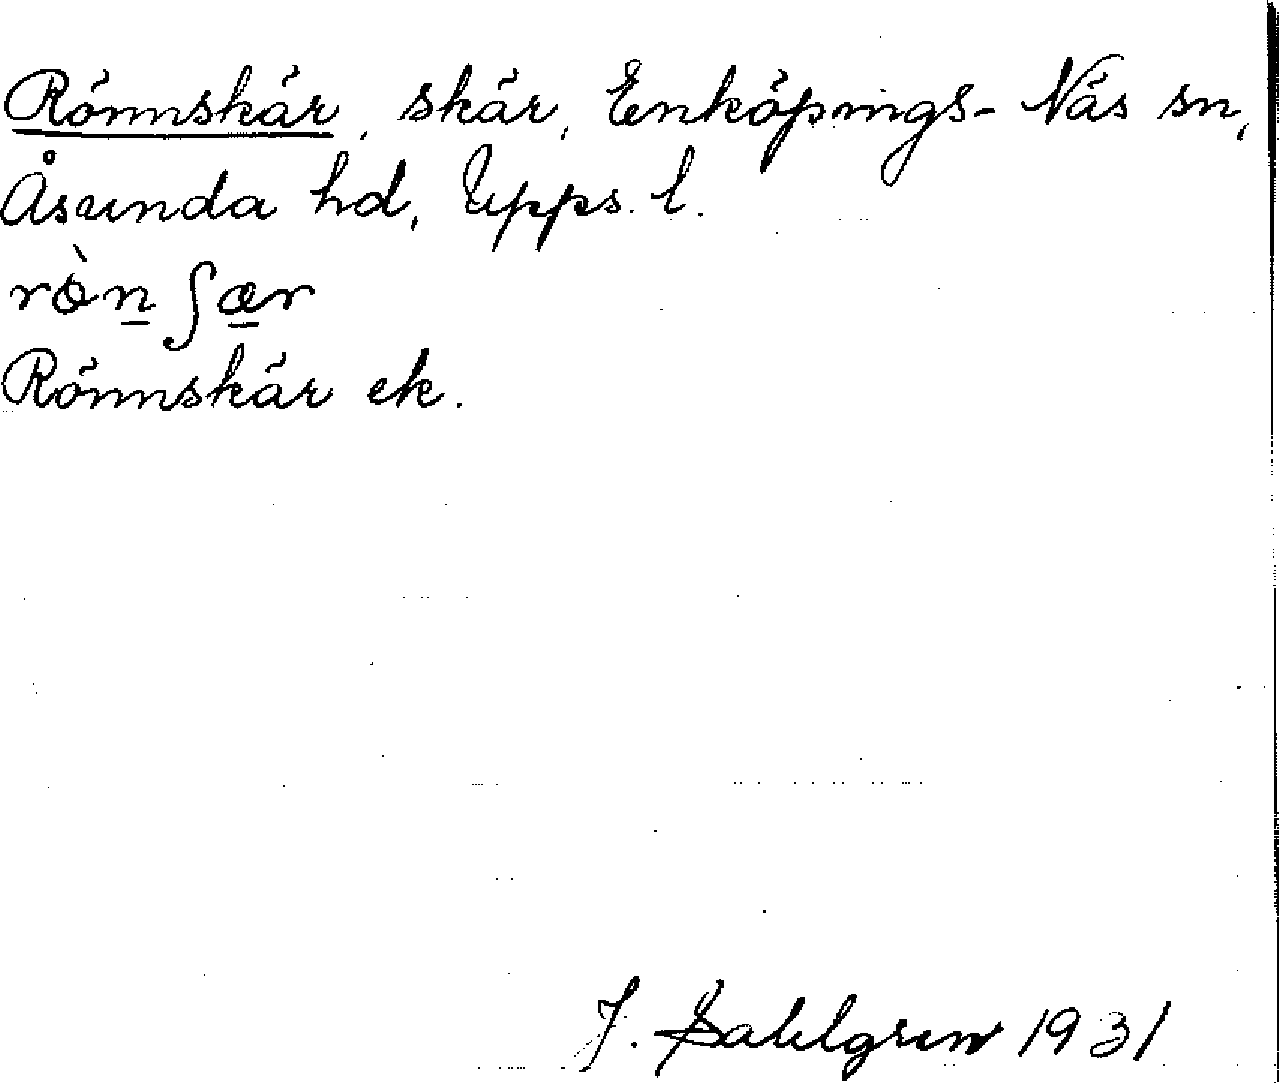 Rönnskär, skär, Enköpings-Näs sn,
Åsunda hd, Upps. l.
rὸ̀n̲ ʃæ̲r
Rönnskär ek.
J. Sahlgren 1931